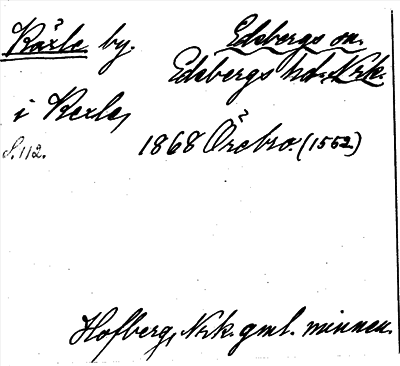 Kärle by. Edsbergs sn.
Edsbergs hd. Nrk.
i Kerle,
S. 112. 1868 Örebro. (1552)
Hofberg, Nrk. gml. minnen.